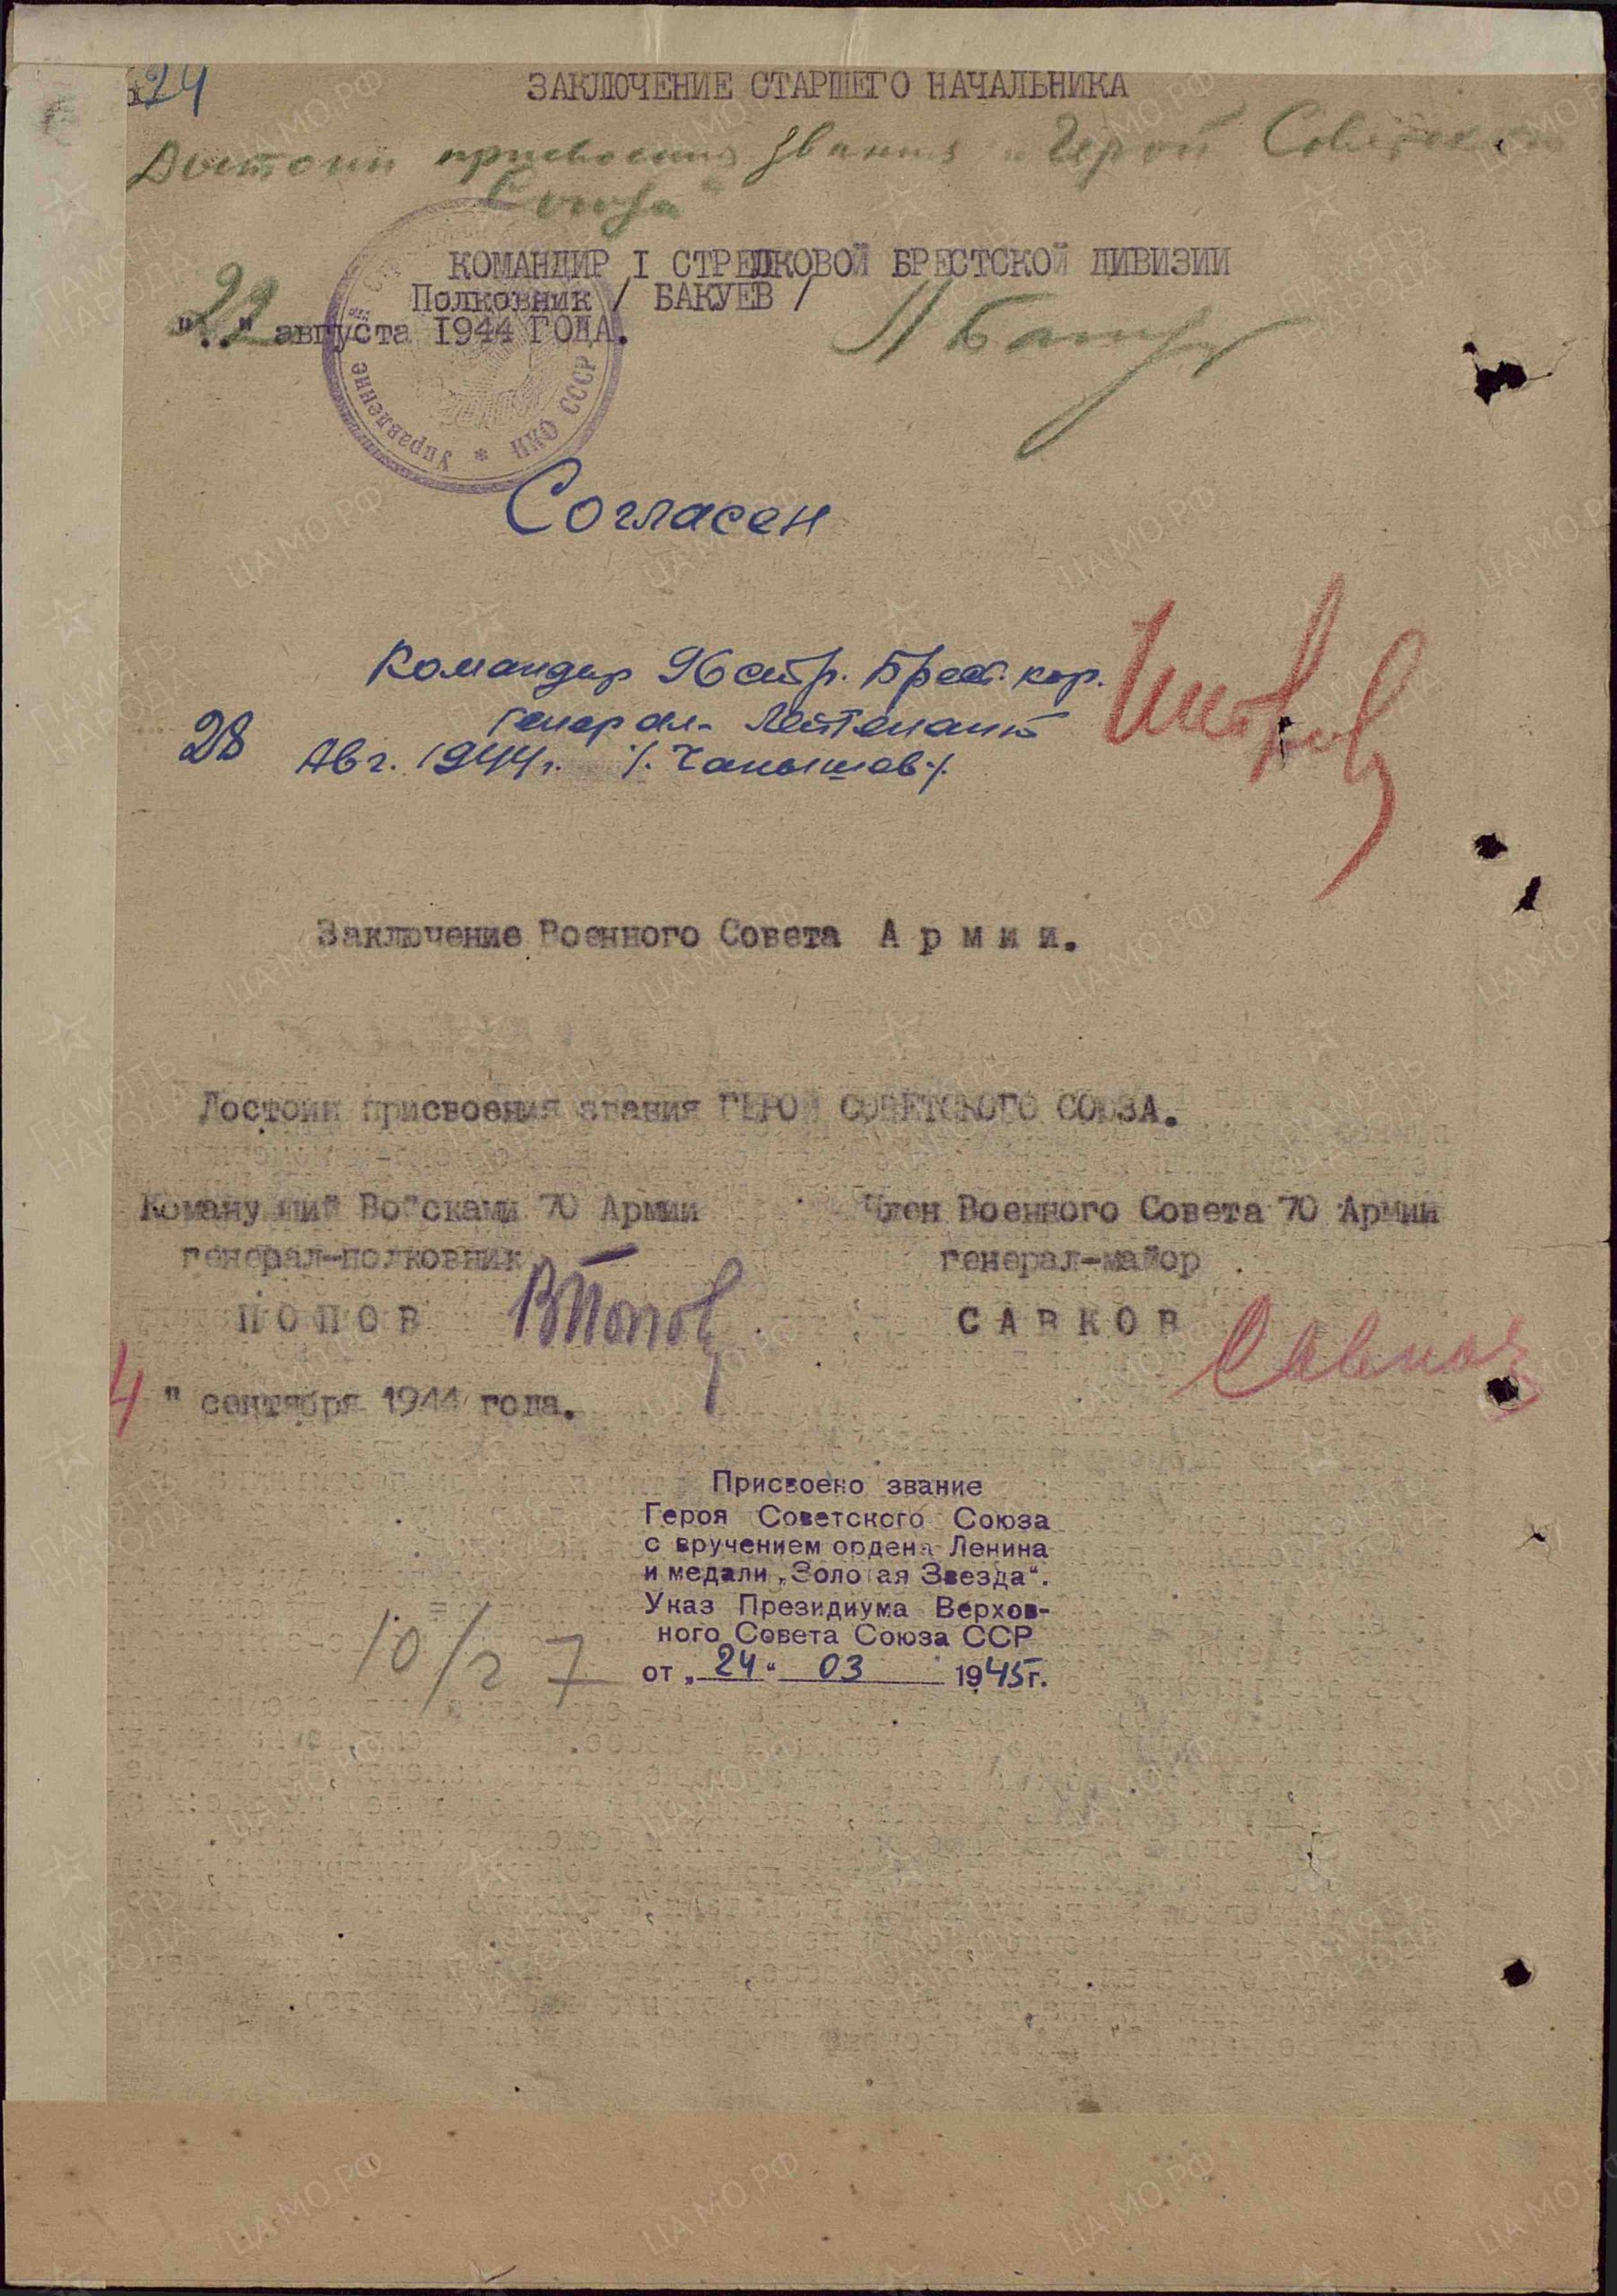 24
ЗАКЛЮЧЕНИЕ СТАРШЕГО НАЧАЛЬНИКА
Достоин присвоения звания "Герой Советского
Союза"
КОМАНДИР I СТРЕЛКОВОЙ БРЕСТСКОЙ ДИВИЗИИ
Полковник / БАКУЕВ /
"22" августа 1944 ГОДА.
Управление * НКО СССР
Согласен
Командир 96 стр. Брест. кор.
генерал-лейтенант
28 Авг. 1944 г. /. Чанышев ./
Заключение Военного Совета Армии.
Достоин присвоения звания ГЕРОЙ СОВЕТСКОГО СОЮЗА.
Команду щий Войсками 70 Армии Член Военного Совета 70 Армии
генерал-полковник генерал-майор
ПОПОВ ВПопов САВКОВ Савков
4 " сентября 1944 года.
Присвоено звание
Героя Советского Союза
с вручением ордена Ленина
и медали „Золотая Звезда“.
Указ Президиума Верхов-
ного Совета Союза ССР
от „24“ 03 1945г.
ПАМЯТЬ НАРОДА
ЦАМО.РФ